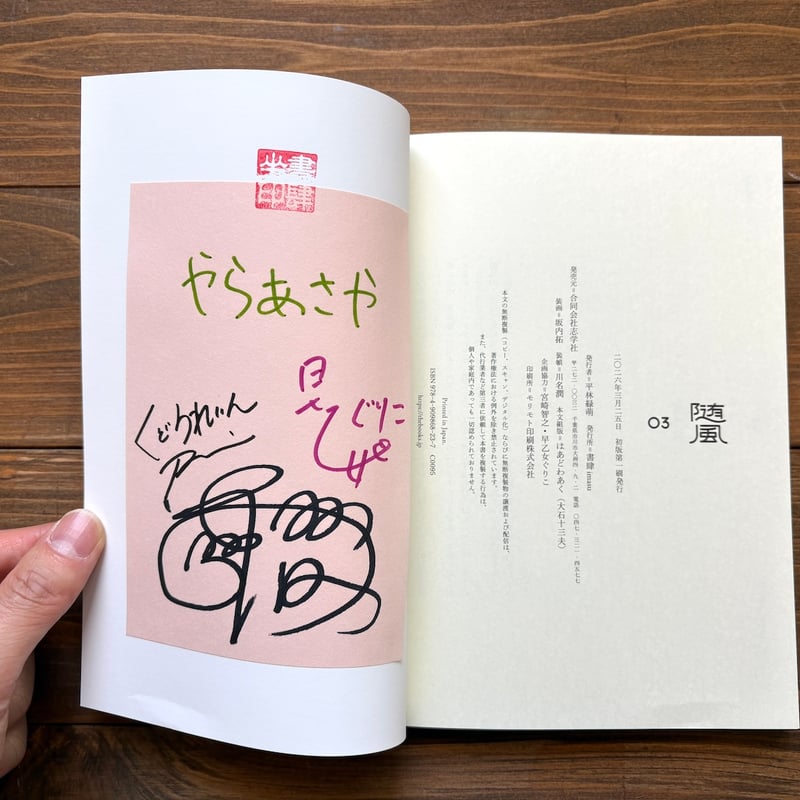 やらあさや
早乙女ぐりこ
くどうれいん
随風
03
二〇二六年三月二五日　初版第一刷発行
発行者＝平林緑萌　発行所＝書肆imasu
発売元＝合同会社志学社
千葉県市川市大洲四-九-二　電話　〇四七-三二一-四五七七
装画＝坂内拓　装幀＝川名潤　本文組版＝はあどわあく（大石十三夫）
企画協力＝宮崎智之・早乙女ぐりこ
印刷所＝モリモト印刷株式会社
本文の無断複製（コピー、スキャン、デジタル化）ならびに無断複製物の譲渡および配信は、
著作権法における例外を除き禁止されています。
また、代行業者など第三者に依頼して本書を複製する行為は、
個人や家庭内であっても一切認められておりません。
Printed in Japan.
ISBN 978-4-909868-23-7　C0095